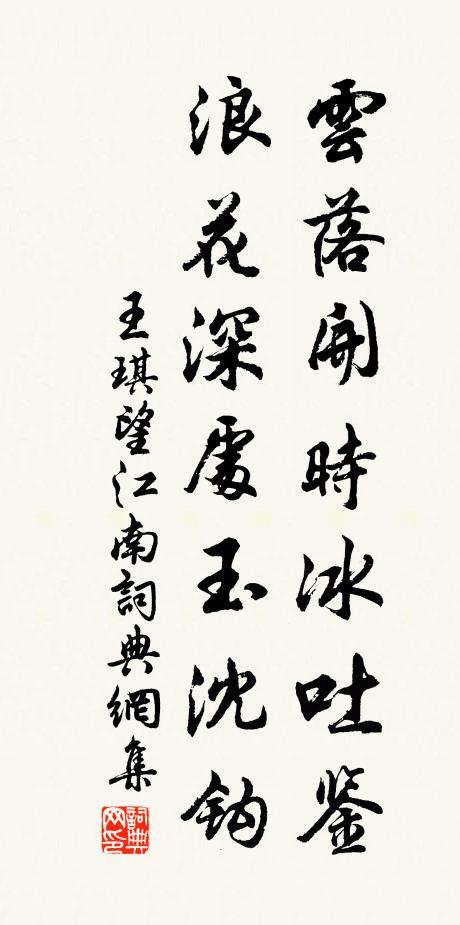 雲落開時冰吐鉴
浪花深處玉沈鈎
王琪望江南詞典網集
詞典网印